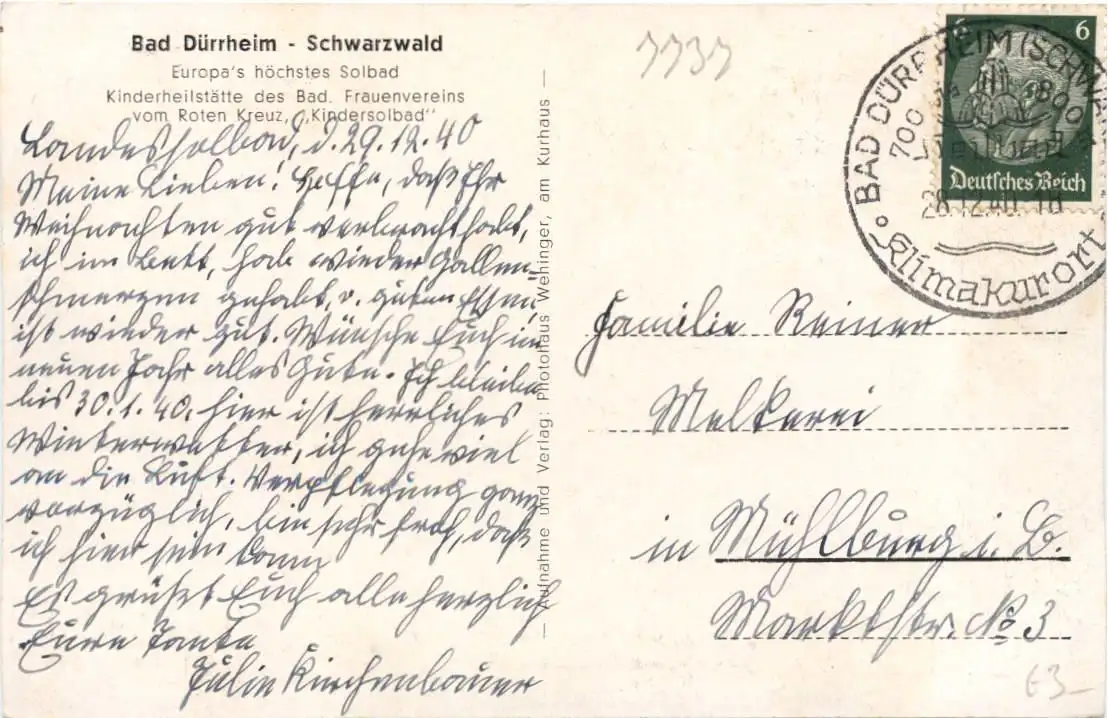 Bad Dürrheim - Schwarzwald
Europa's höchstes Solbad
Kinderheilstätte des Bad. Frauenvereins
vom Roten Kreuz, „Kindersolbad"
Landessolbad, d. 29.12.40
Meine Lieben! Hoffe, daß Ihr
Weihnachten gut verbracht habt,
ich im Bett, hab wieder Gallen-
schmerzen gehabt, v. guten Essen,
ist wieder gut. Wünsche Euch im
neuen Jahr alles Gute. Ich bleibe
bis 30.1.40. hier ist herrliches
Winterwetter, ich gehe viel
an die Luft. Verpflegung ganz
vorzüglich, bin sehr froh, daß
ich hier sein kann
Es grüßt Euch alle herzlich
Eure Tante
Julie Kirchenbauer
Aufnahme und Verlag: Photohaus Wehinger, am Kurhaus
7737
6 6
Deutsches Reich
BAD DÜRRHEIM (SCHWAR
700 - 800 m
28.12.40. 18
Klimakurort
Familie Reiner
Molkerei
in Mühlburg i. B.
Marktstr. No 3
£3-